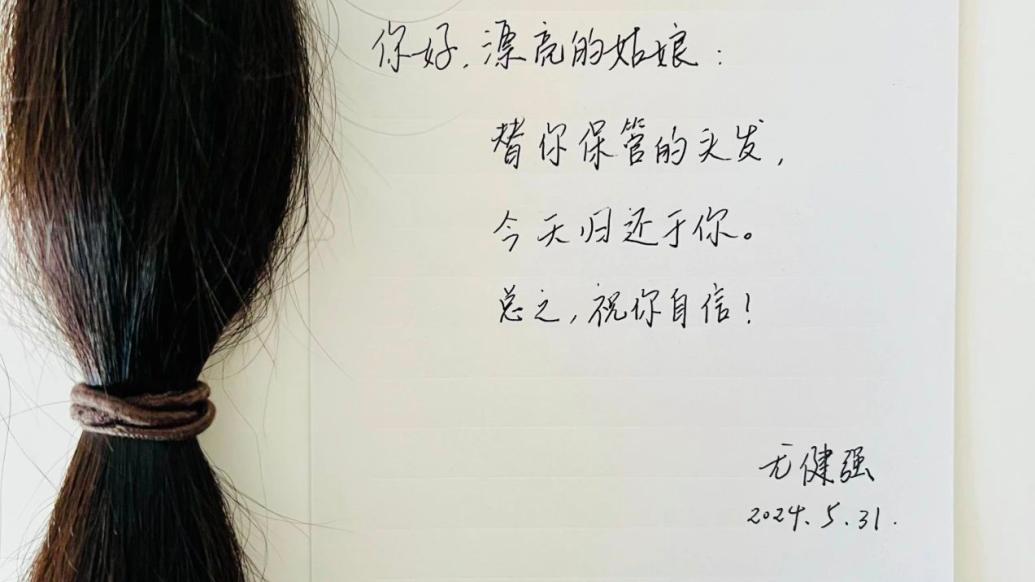 你好，漂亮的姑娘：
替你保管的头发，
今天归还于你。
总之，祝你自信！
无健强
2024.5.31.